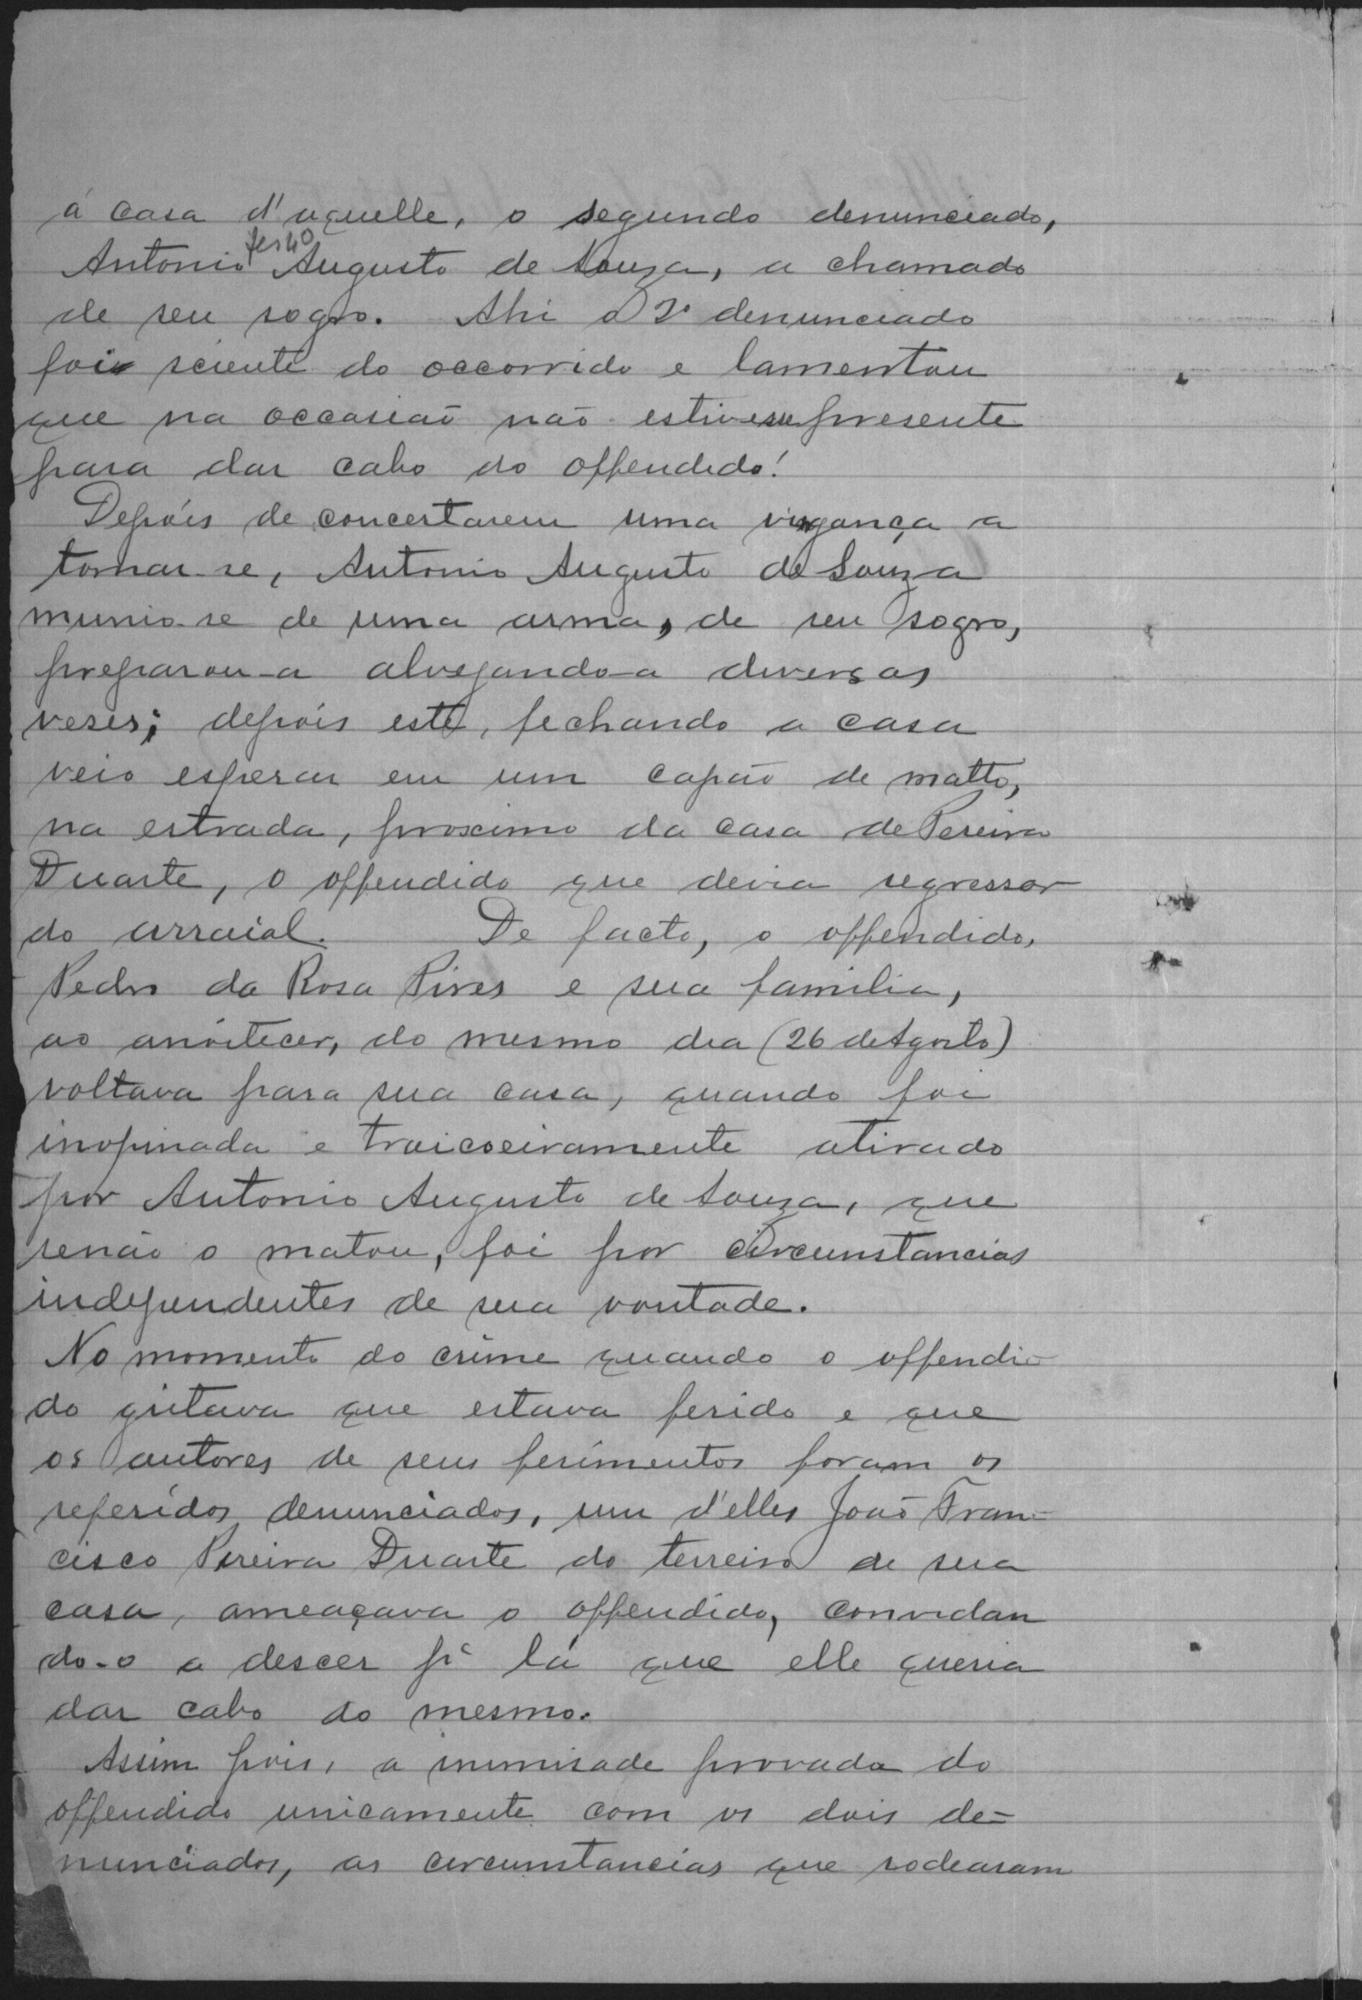 á casa d'aquelle, o segundo denunciado,
fes 40
Antonio Augusto de Souza, a chamado
de seu sogro. Ahi o 2º denunciado
foi sciente do occorrido e lamentou
que na occasião não estivesse presente
para dar cabo do offendido!
Depóis de concertarem uma vingança a
tomar-se, Antonio Augusto de Souza
munio-se de uma arma, de seu sogro,
preparou-a alvejando-a diversas
veses; depóis este, fechando a casa
veio esperar em um capão de matto,
na estrada, proximo da casa de Pereira
Duarte, o offendido que devia regressar
do arraial. De facto, o offendido,
Pedro da Rosa Pires e sua familia,
ao anóitecer, do mesmo dia (26 de Agosto)
voltava para sua casa, quando foi
inopinada e traicoeiramente atirado
por Antonio Augusto de Souza, que
senão o matou, foi por circunstancias
independentes de sua vontade.
No momento do crime quando o offendi-
do gritava que estava ferido e que
os autores de seus ferimentos foram os
referidos denunciados, um d'elles João Fran-
cisco Pereira Duarte do terreiro de sua
casa, ameaçava o offendido, convidan
do-o a descer p' lá que elle queria
dar cabo do mesmo.
Assim pois, a inimisade provada do
offendido unicamente com os dois de=
nunciados, as circunstancias que rodearam